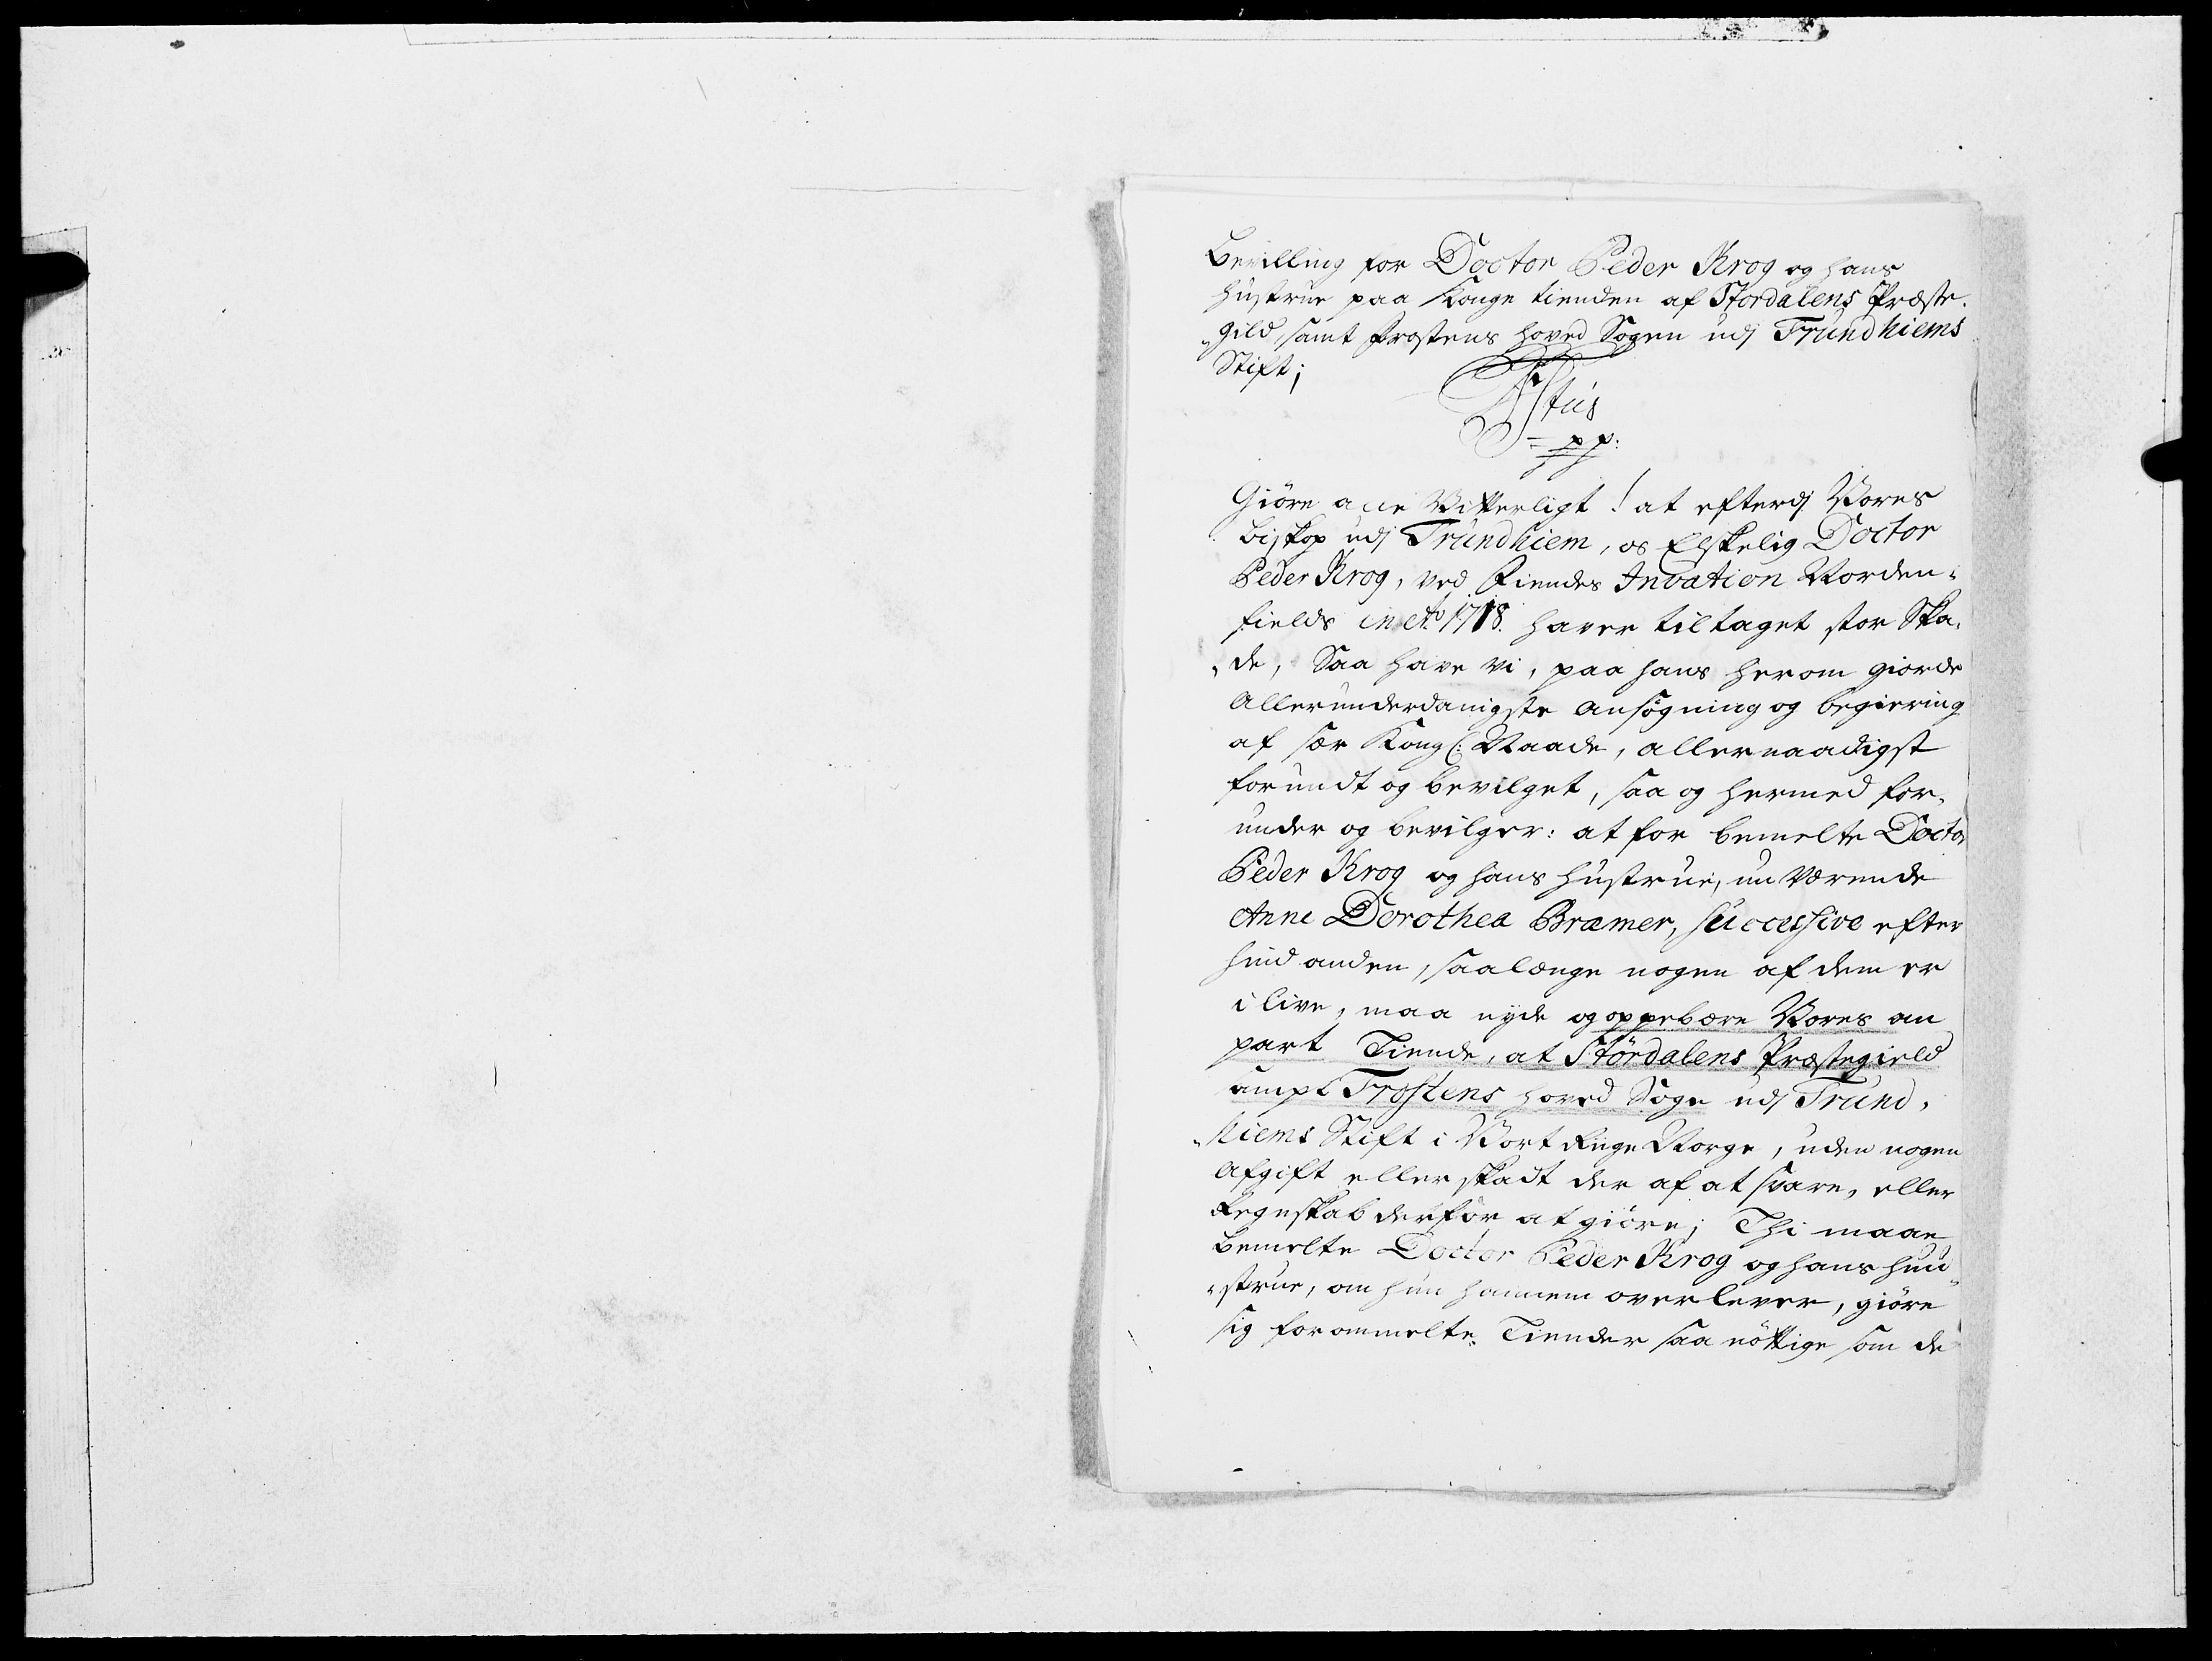 Bevilling for Doctor Peder Krog og hans
Hustrue paa Konge tienden af Stordalens Præste¬
„gild samt Frostens hoved Sogen udj Trundhiems
Stift;
pp:
Giöre alle Vitterligt! at efterdj Vores
Biskop udj Trundhiem, os Elskelig Doctor
Peder Krog, ved Fiendes Invation Norden¬
fields in Ao 1718. haver tiltaget stor Ska¬
„de, Saa have vi, paa hans herom giorde
Allerunderdanigste Ansøgning og begiering
af sær Kongl: Naade, allernaadigst
forundt og bevilget, saa og hermed for¬
under og bevilger: at for bemelte Doctor
Peder Krog og hans Hustrue, nu Værende
Anne Dorothea Bræmer, successive efter
hind anden, saalænge nogen af dem er
i live, maa nyde og oppebære Vores an
part Tiende, at Stördalens Præstegield
sampt Frostens hoved Sogn udj Trund¬
„hiems Stift i Vort Rige Norge, uden nogen
Afgift eller skadt der af at svare, eller
Regnskab derfor at giöre; Thi maae
bemelte Doctor Peder Krog og hans Huu¬
„strue, om hun hannem overlever, giöre
sig forommelte Tiender saa nøttige som de